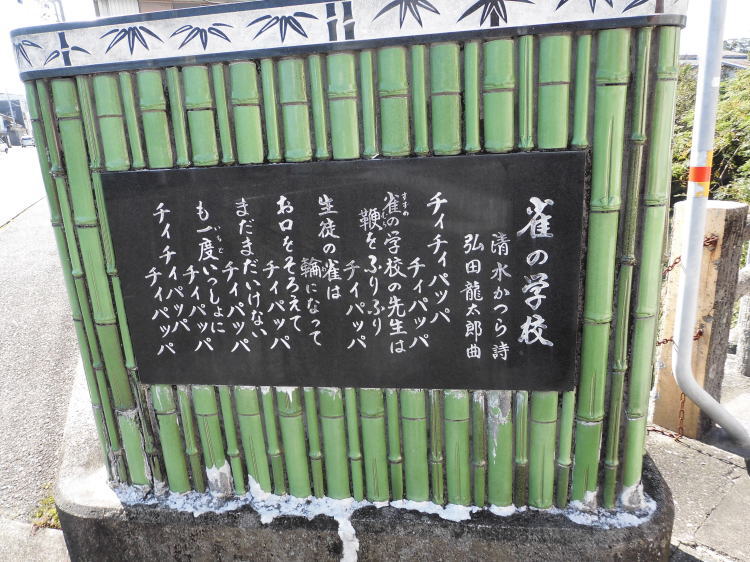 雀の学校
清水かつら詩
弘田龍太郎曲
チイチイパッパ
チイパッパ
雀の学校の先生は
鞭をふりふり
チイパッパ
生徒の雀は
輪になって
お口をそろえて
チイパッパ
まだまだいけない
チイパッパ
も一度いっしょに
チイパッパ
チイチイパッパ
チイパッパ